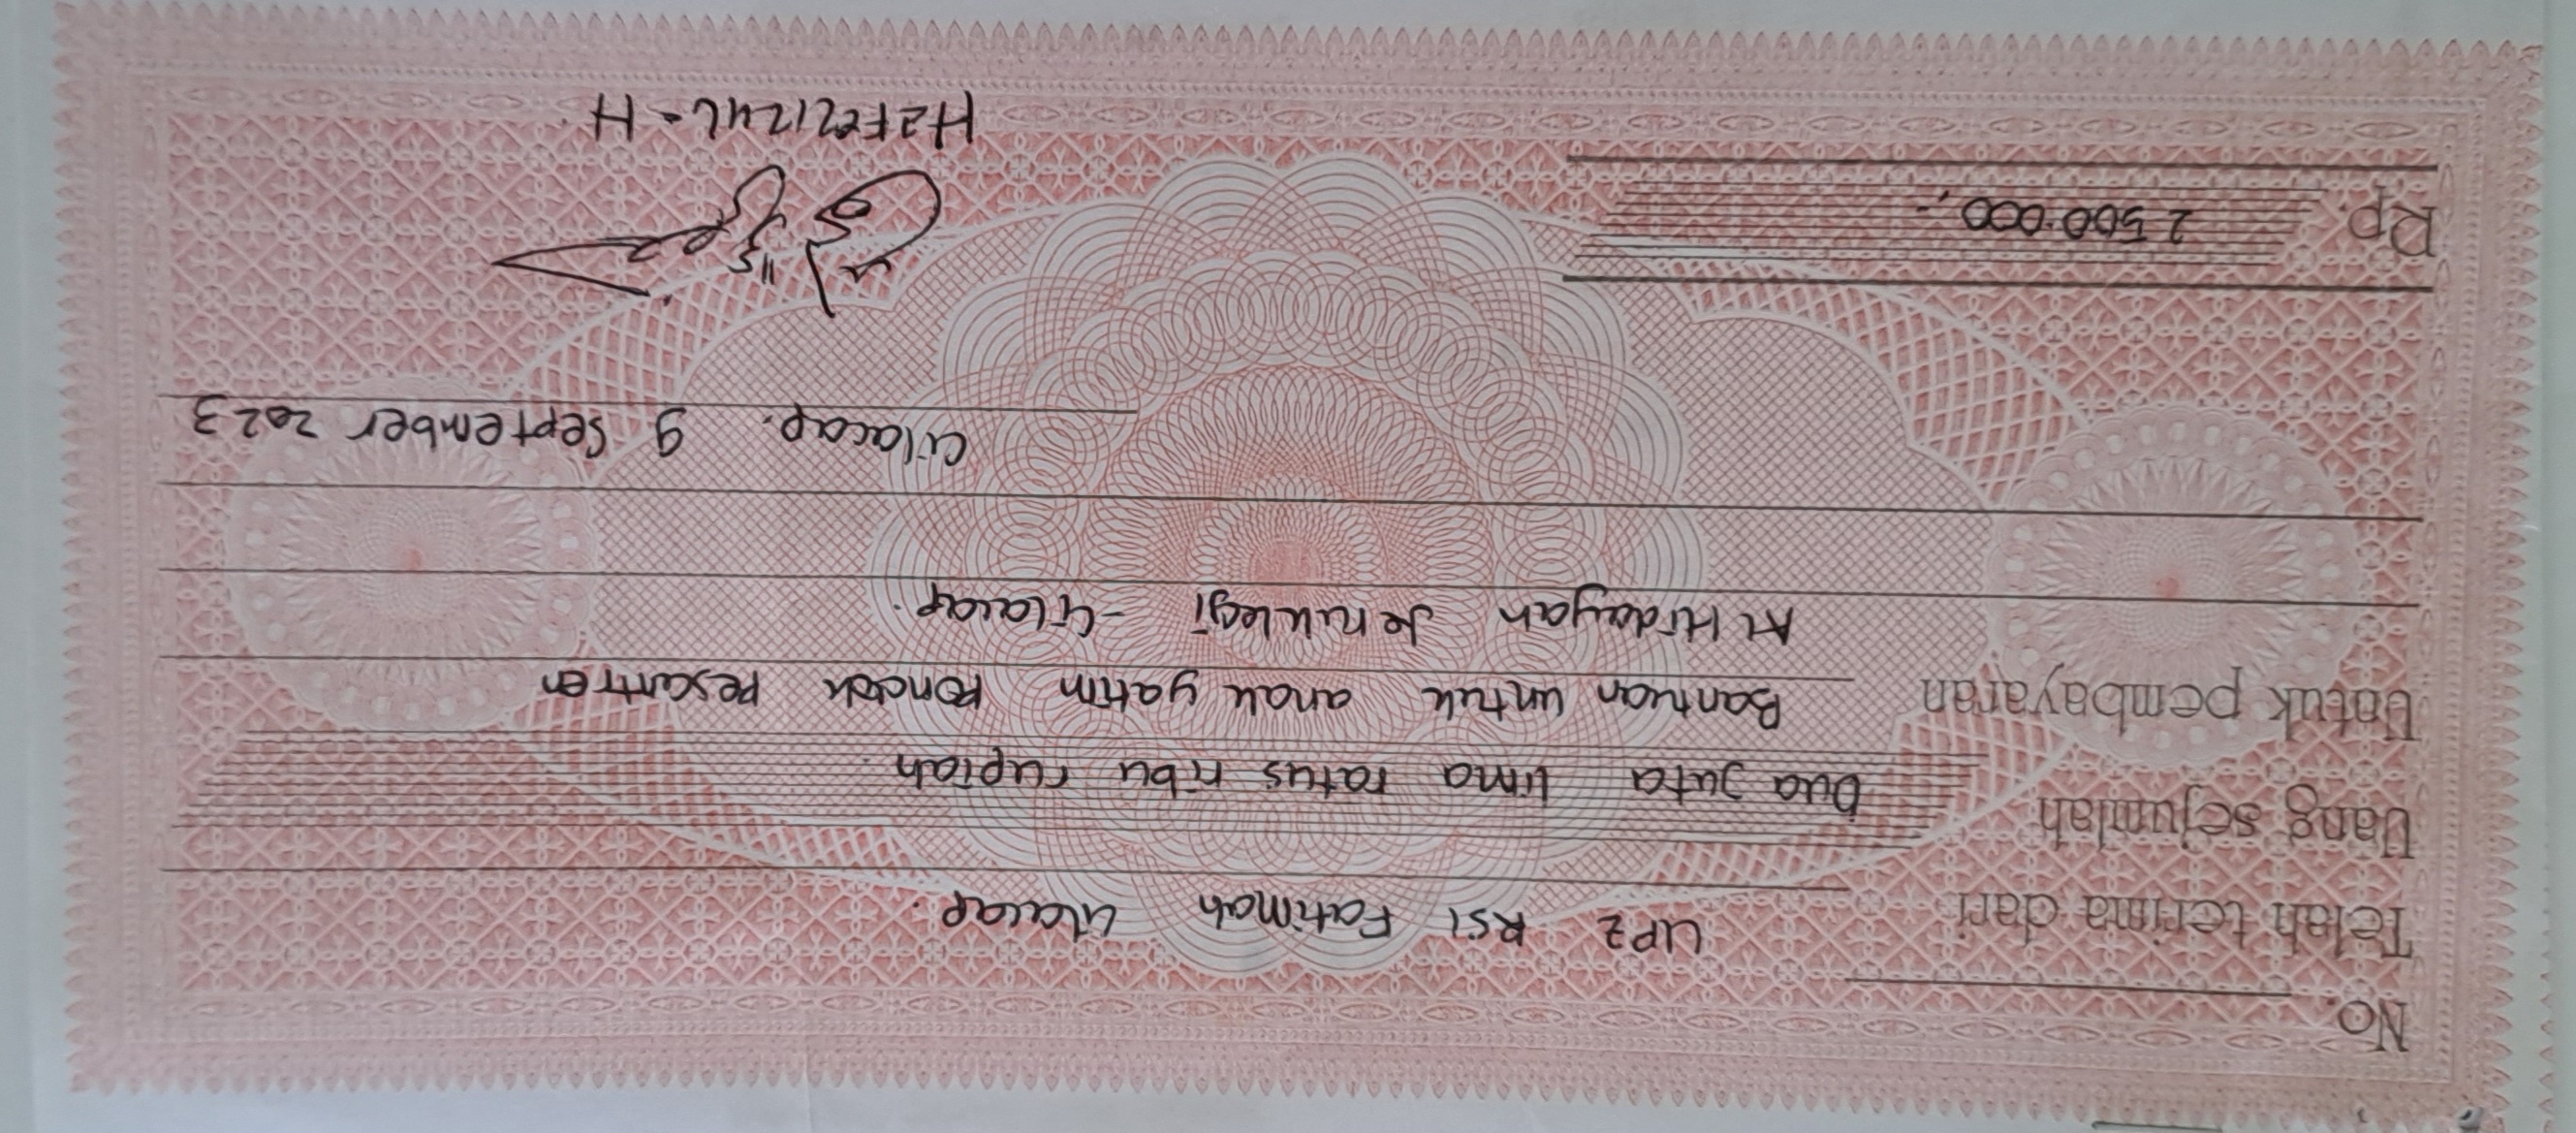 No.
Telah terima dari UPZ RSI Fatimah Cilacap.
Uang sejumlah Dua Juta lima ratus ribu rupiah.
Untuk pembayaran Bantuan untuk anak yatim Pondok Pesantren
Al Hidayah Jeruklegi - Cilacap.
Cilacap, 9 September 2023
Rp. 2.500.000,-